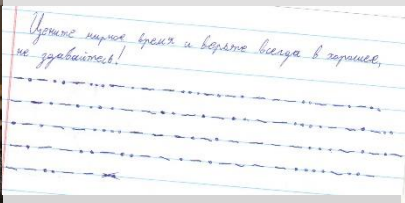 Цените мирное время и верьте всегда в хорошее,
не здавайтесь!